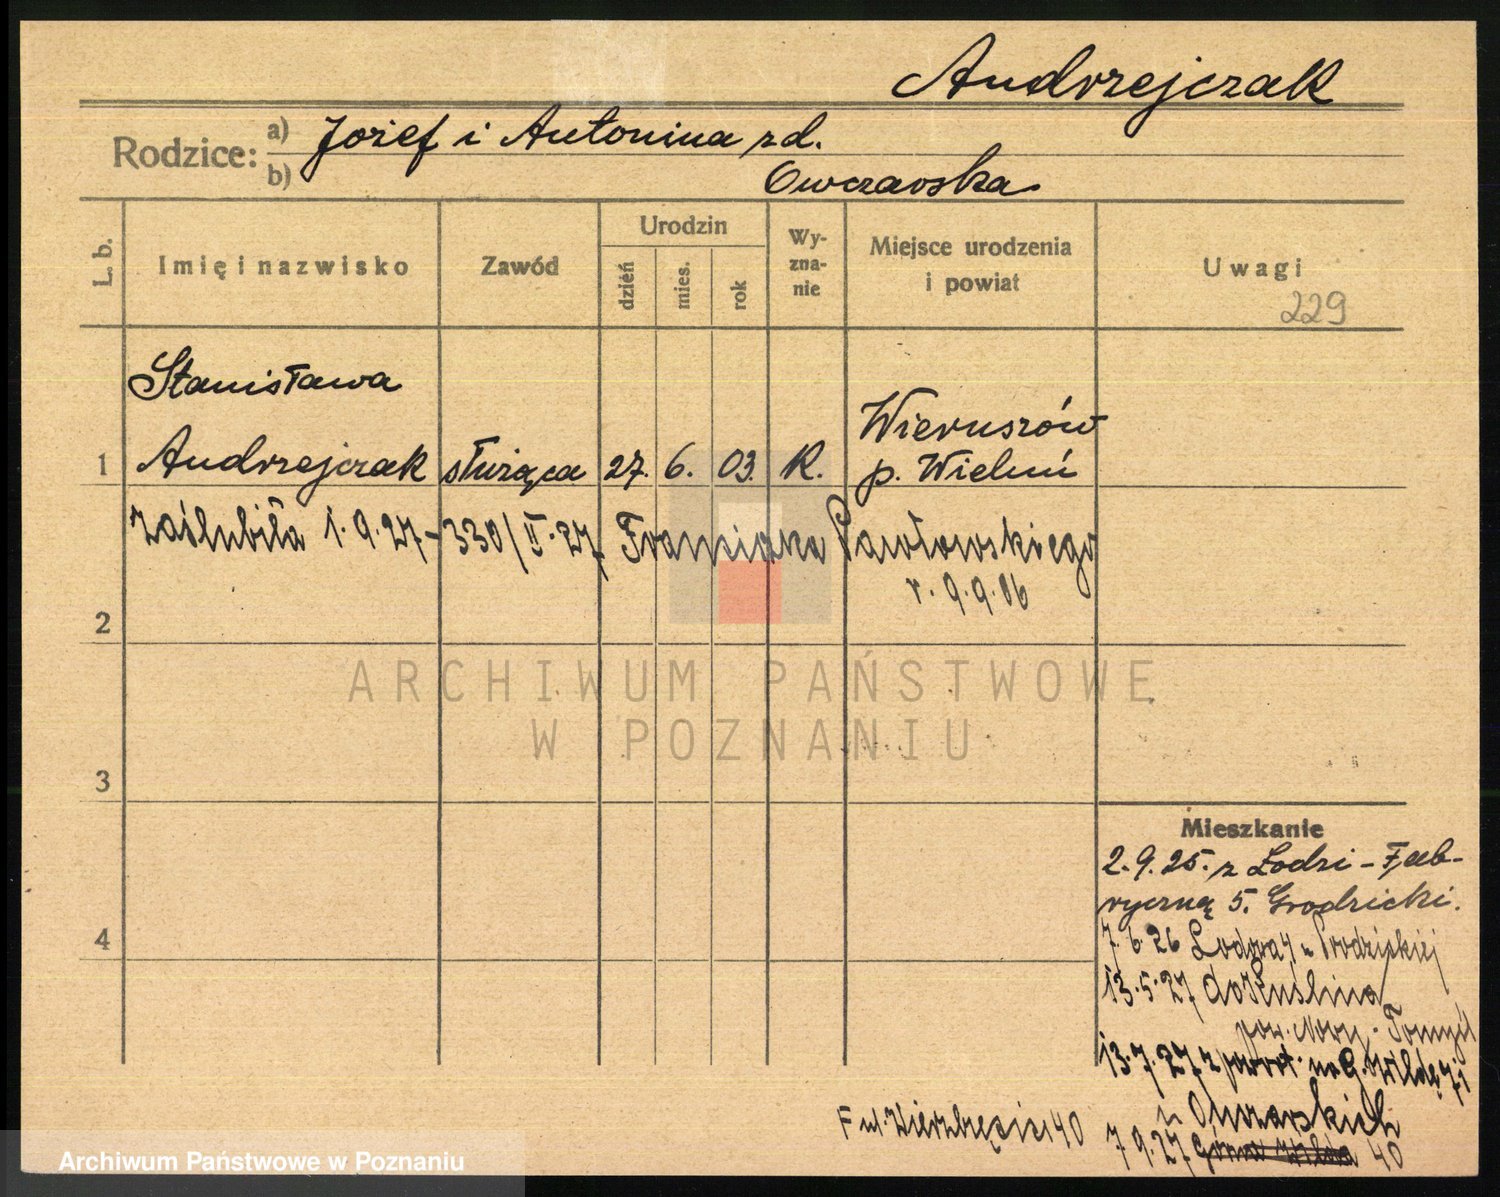 Andrzejczak
Rodzice:
a) Józef i Antonina zd.
b) Owczarska.
L. b.
Imię i nazwisko
Zawód
Urodzin
dzień
mies.
rok
Wy-
zna-
nie
Miejsce urodzenia
i powiat
Uwagi
229
Stanisława
Wieruszów
1 Andrzejczak służąca 27. 6. 03. R. p. Wieluń
zaślubiła 1.9.27 - 330/II.27 Franciszka Pawłowskiego
r. 9.9.06
2
ARCHIWUM PAŃSTWOWE
W POZNANIU
3
Mieszkanie
2.9.25. z Łodzi - Fab-
ryczną 5. Grodzicki.
4
7.6.26 Łodowa 4 u Grodzickiej
13.5.27 do Kuślina
pow. Nowy-Tomyśl
13.7.27 z powrot. na G. Wildę 71
u Owczarskich
F ul. Wierzbięcice 40
7.9.27 Górna Wilda 40
Archiwum Państwowe w Poznaniu